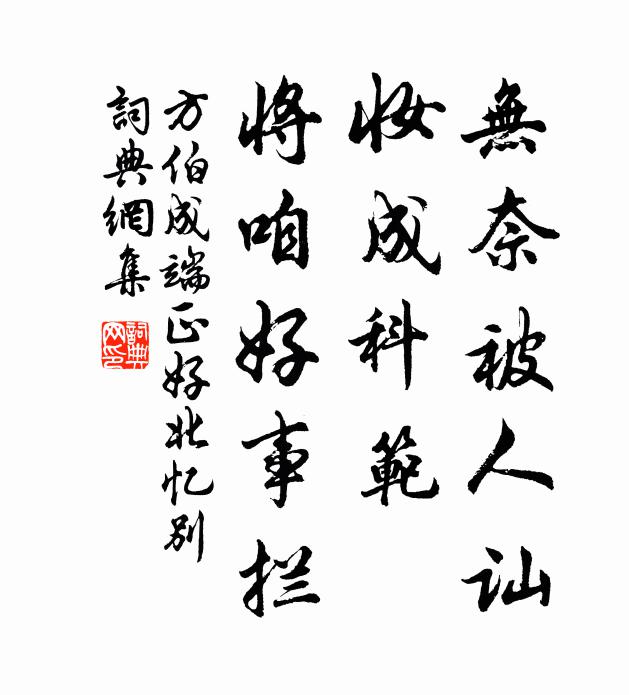 無奈被人讪
妆成科範
將咱好事拦
方伯成端正好北忆别
詞典網集
詞典網印